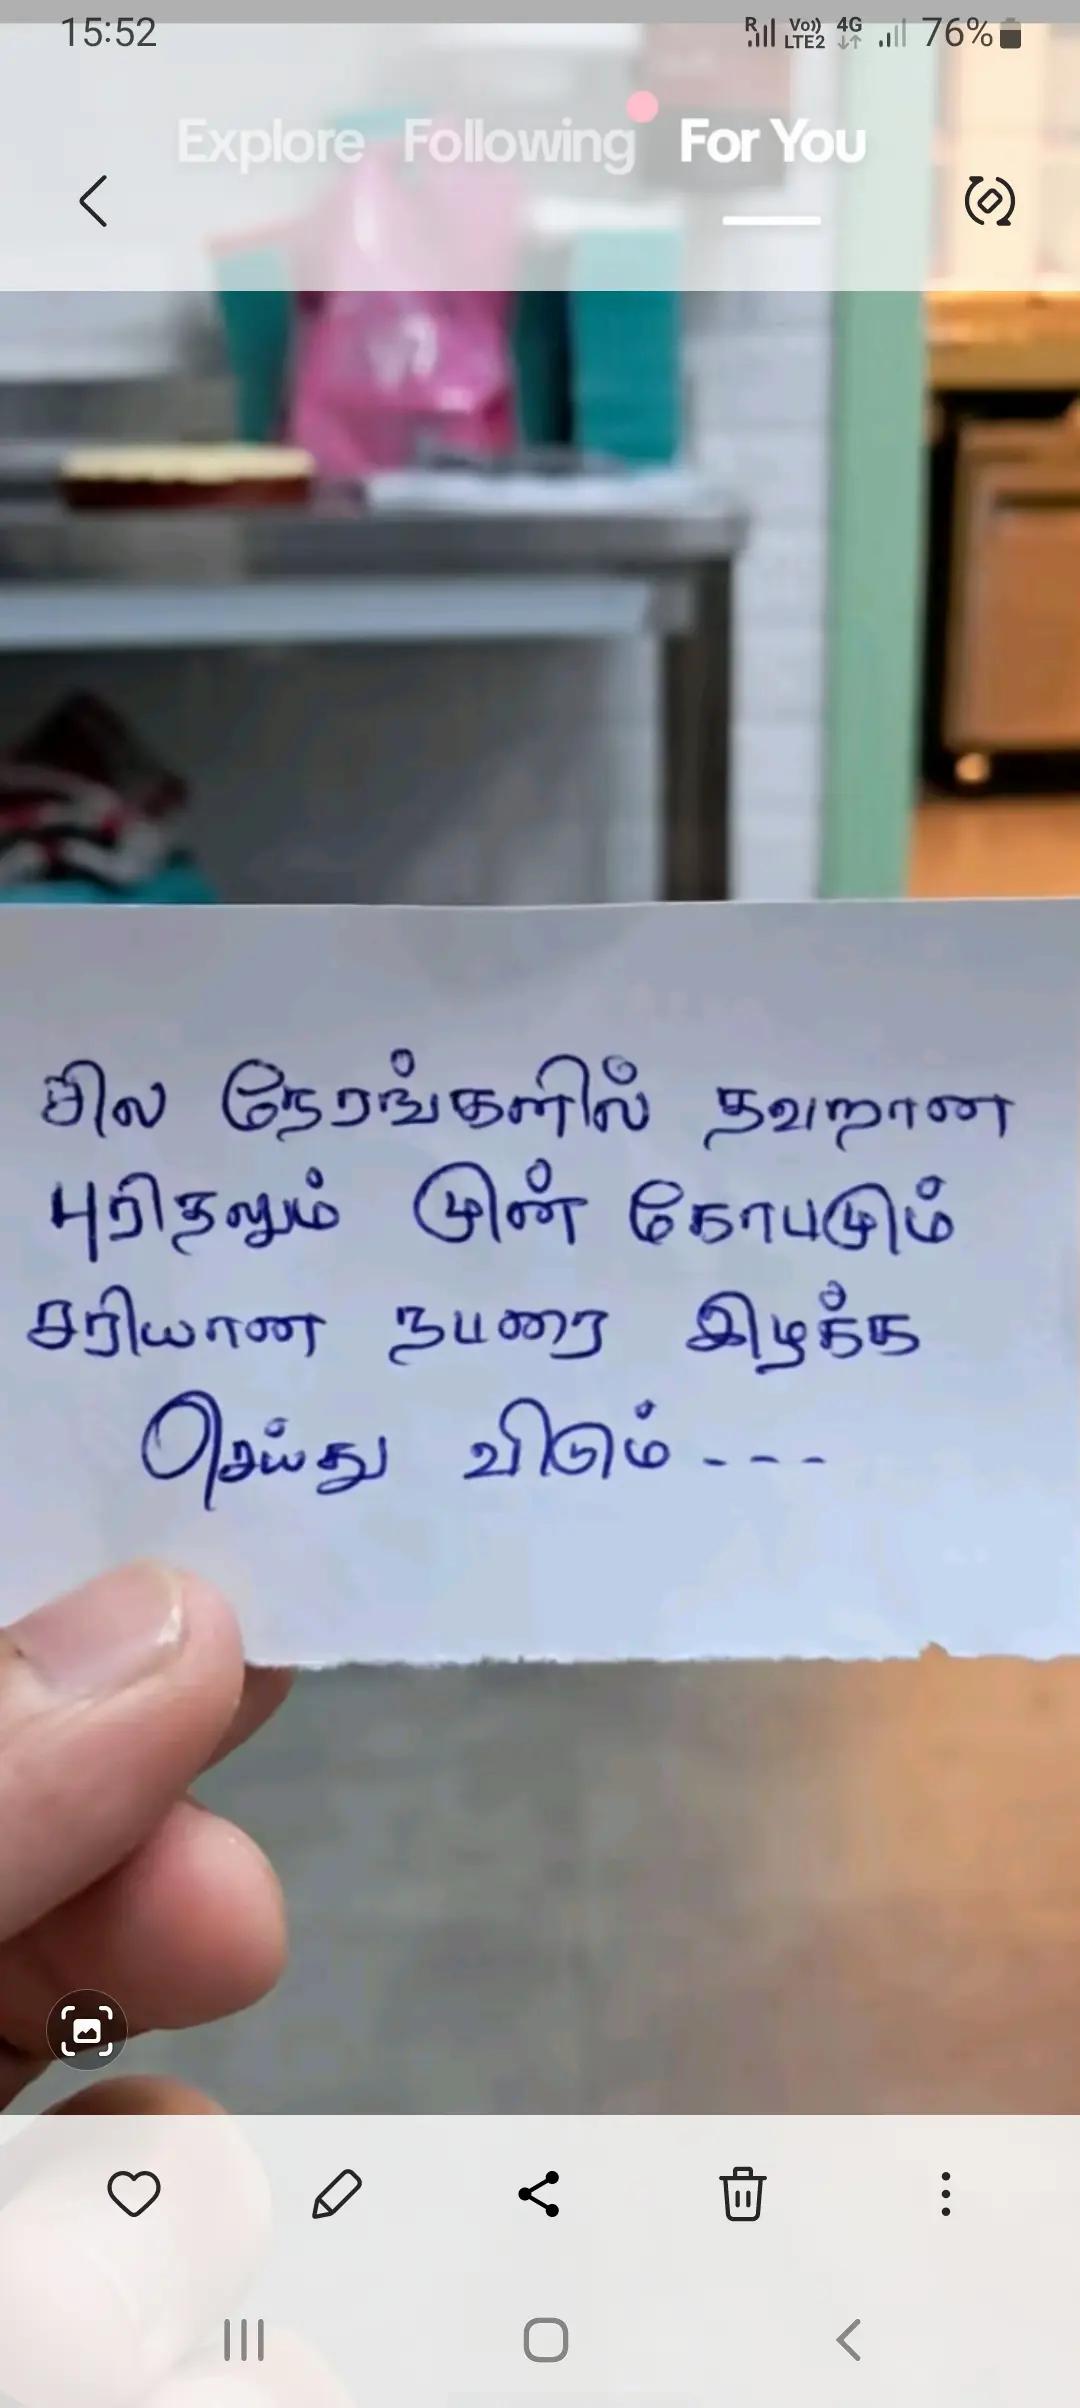 15:52
R Vo)) LTE2 4G 76%
Explore Following For You
சில நேரங்களில் தவறான
புரிதலும் முன் கோபமும்
சரியான நபரை இழக்க
செய்து விடும் - - -